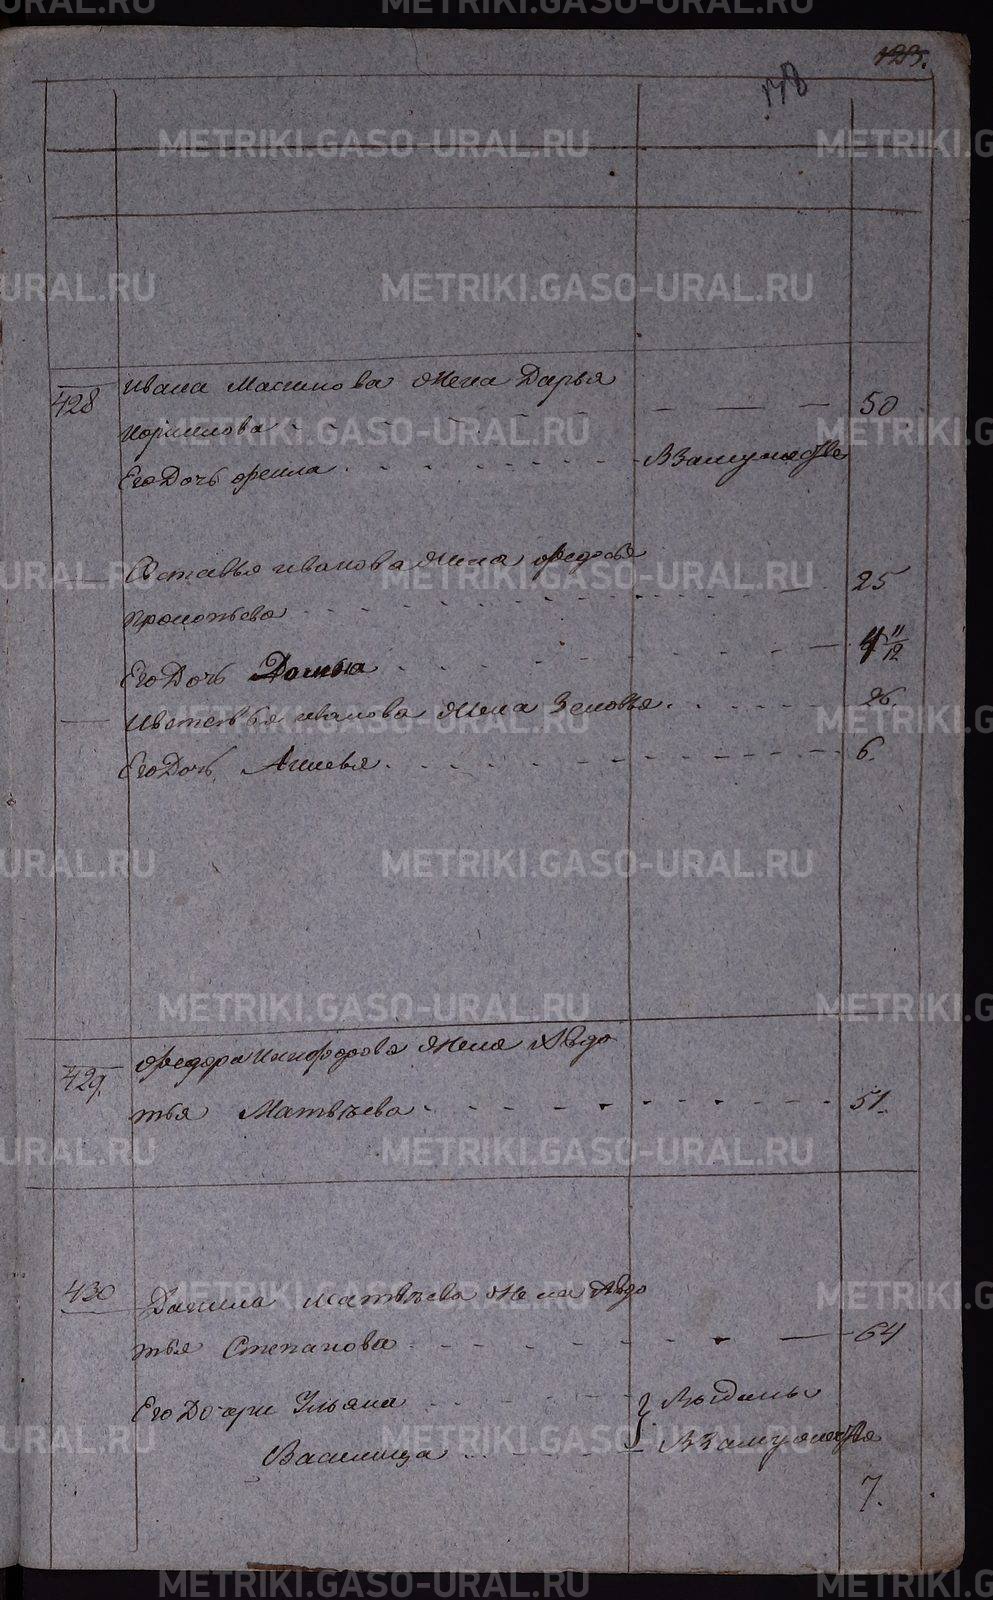 123.
178
428
Ивана Максимова жена Дарья
Корнилова 50
Его Дочь Фекла В замужестве
Остафья иванова жена Федосья
Прокопьева 25
Его Дочь Домна 4 11/12
Иванова жена Зеновья 26.
Его Дочь 6.
429.
Федора Никифорова жена Авдо
тья Матвѣева 51.
430
Данила Матвѣева жена Авдо
тья Степанова 64
Его Дочери Ульяна Выданы
Василиса В замужества
7.
METRIKI.GASO-URAL.RU